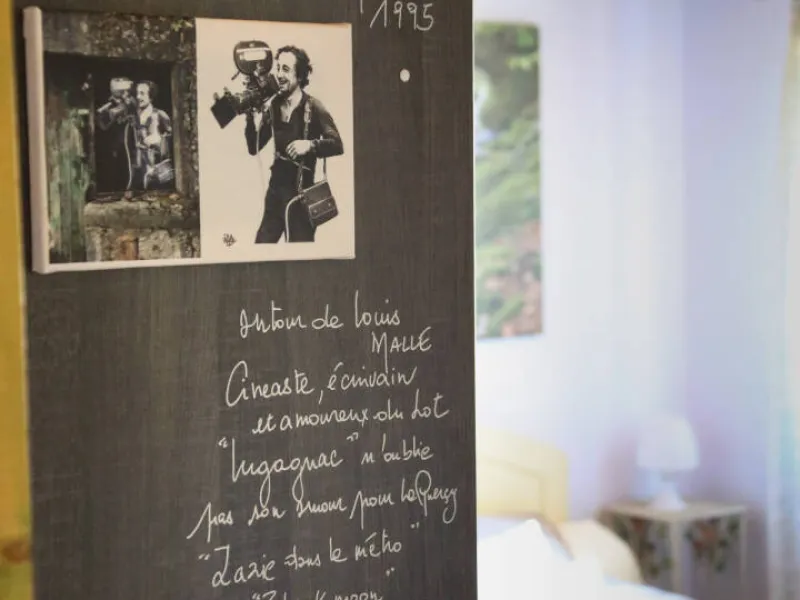 1995
Autour de Louis
MALLE
Cineaste, écrivain
et amoureux du Lot
"Lugagnac" n'oublie
pas son amour pour le Quercy
"Zazie dans le métro"
moon"